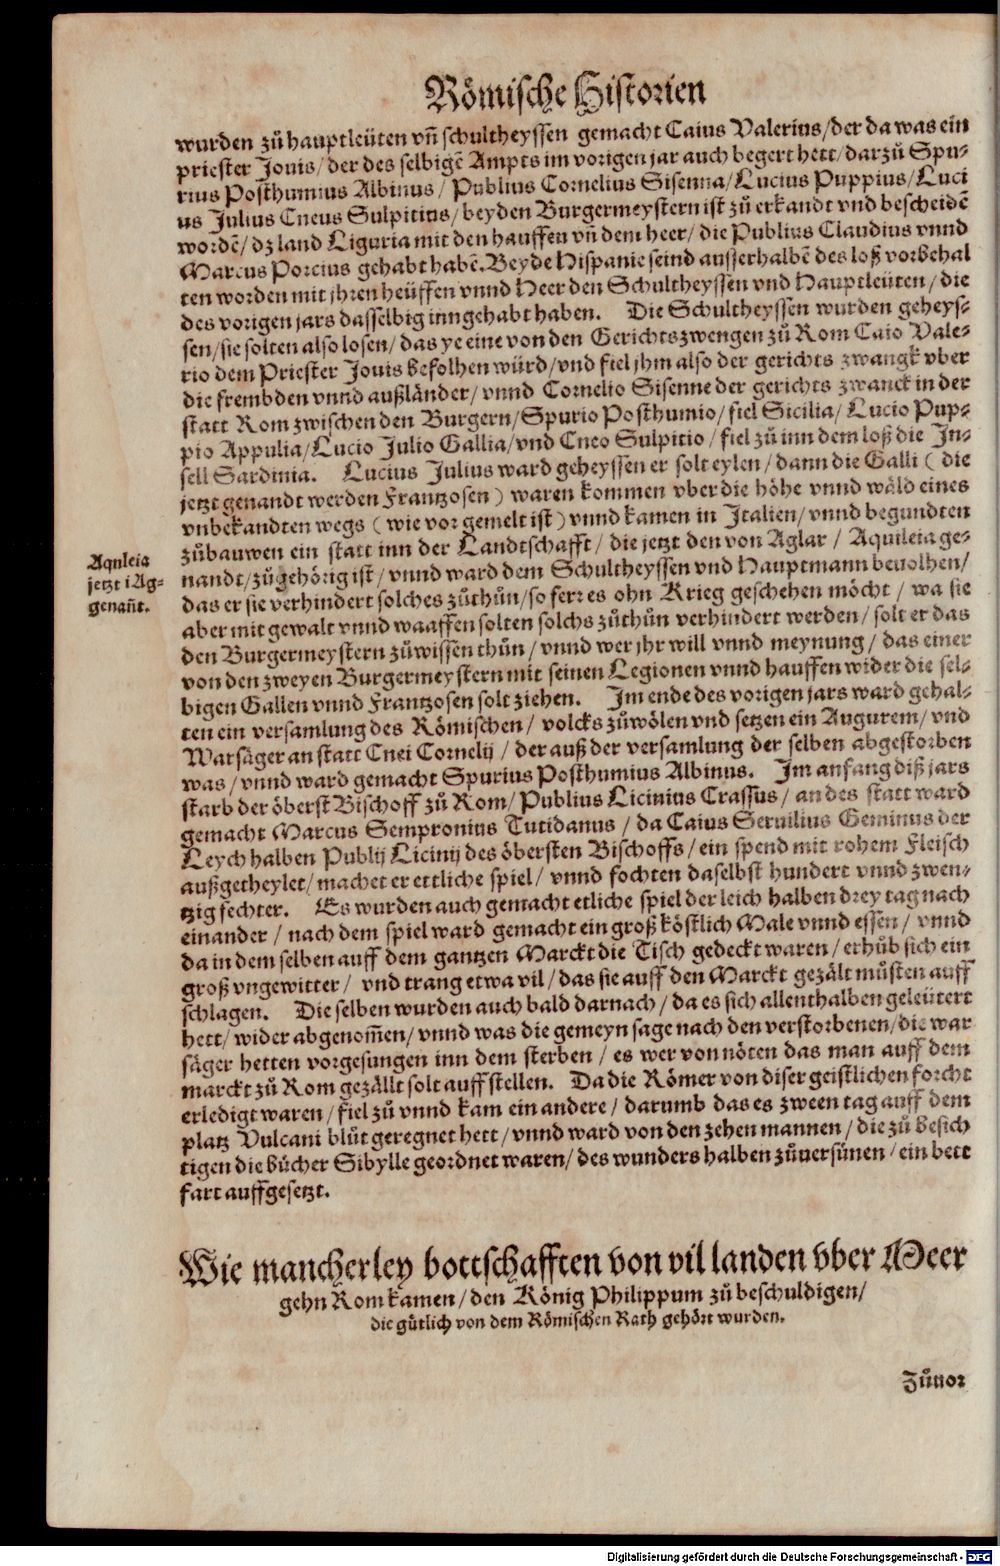 Römische Historien
wurden zů hauptleüten vñ schultheyssen gemacht Caius Valerius/der da was ein
priester Jouis/der des selbigẽ Ampts im vorigen jar auch begert hett/darzů Spu-
rius Posthumius Albinus/ Publius Cornelius Sisenna/Lucius Puppius/Luci
us Julius Cneus Sulpitius/beyden Burgermeystern ist zů erkandt vnd bescheidẽ
wordẽ/dz land Liguria mit den hauffen vñ dem heer/die Publius Claudius vnnd
Marcus Porcius gehabt habẽ. Beyde Hispanie seind ausserhalbẽ des loß vorbehal
ten worden mit jhren heüffen vnnd Heer den Schultheyssen vnd Hauptleüten/die
des vorigen jars dasselbig inngehabt haben. Die Schultheyssen wurden geheys-
sen/sie solten also losen/das ye eine von den Gerichtszwengen zů Rom Caio Vale-
rio dem Priester Jouis befolhen würd/vnd fiel jhm also der gerichts zwangk vber
die frembden vnnd außländer/vnnd Cornelio Sisenne der gerichts zwanck in der
statt Rom zwischen den Burgern/Spurio Posthumio/fiel Sicilia/Lucio Pup-
pio Appulia/Lucio Julio Gallia/vnd Cneo Sulpitio/fiel zů inn dem loß die In-
sell Sardinia. Lucius Julius ward geheyssen er solt eylen/dann die Galli (die
jetzt genandt werden Frantzosen) waren kommen vber die höhe vnnd wäld eines
vnbekandten wegs (wie vor gemelt ist) vnnd kamen in Italien/vnnd begundten
zůbauwen ein statt inn der Landtschafft/die jetzt den von Aglar/Aquileia ge-
Aquleia
jetzt i Ag-
genañt.
nandt/zůgehörig ist/vnnd ward dem Schultheyssen vnd Hauptmann beuolhen/
das er sie verhindert solches zůthůn/so ferr es ohn Krieg geschehen möcht/wa sie
aber mit gewalt vnnd waaffen solten solchs zůthůn verhindert werden/solt er das
den Burgermeystern zůwissen thůn/vnnd wer jhr will vnnd meynung/das einer
von den zweyen Burgermeystern mit seinen Legionen vnnd hauffen wider die sel-
bigen Gallen vnnd Frantzosen solt ziehen. Im ende des vorigen jars ward gehal-
ten ein versamlung des Römischen/volcks zůwölen vnd setzen ein Augurem/vnd
Warsäger an statt Cnei Cornelij/der auß der versamlung der selben abgestorben
was/vnnd ward gemacht Spurius Posthumius Albinus. Im anfang diß jars
starb der öberst Bischoff zů Rom/Publius Licinius Crassus/an des statt ward
gemacht Marcus Sempronius Tutidanus/da Caius Seruilius Geminus der
Leych halben Publij Licinij des öbersten Bischoffs/ein spend mit rohem Fleisch
außgetheylet/machet er ettliche spiel/vnnd fochten daselbst hundert vnnd zwen-
tzig fechter. Es wurden auch gemacht etliche spiel der leich halben drey tag nach
einander/nach dem spiel ward gemacht ein groß köstlich Male vnnd essen/vnnd
da in dem selben auff dem gantzen Marckt die Tisch gedeckt waren/erhůb sich ein
groß vngewitter/vnd trang etwa vil/das sie auff den Marckt gezält můsten auff
schlagen. Die selben wurden auch bald darnach/da es sich allenthalben geleütert
hett/wider abgenom̃en/vnnd was die gemeyn sage nach den verstorbenen/die war
säger hetten vorgesungen inn dem sterben/es wer von nöten das man auff dem
marckt zů Rom gezällt solt auffstellen. Da die Römer von diser geistlichen forcht
erledigt waren/fiel zů vnnd kam ein andere/darumb das es zween tag auff dem
platz Vulcani blůt geregnet hett/vnnd ward von den zehen mannen/die zů besich
tigen die bücher Sibylle geordnet waren/des wunders halben zůuersünen/ein bett
fart auffgesetzt.
Wie mancherley bottschafften von vil landen vber Meer
gehn Rom kamen/den König Philippum zů beschuldigen/
die gütlich von dem Römischen Rath gehört wurden.
Zůuor
Digitalisierung gefördert durch die Deutsche Forschungsgemeinschaft - DFG